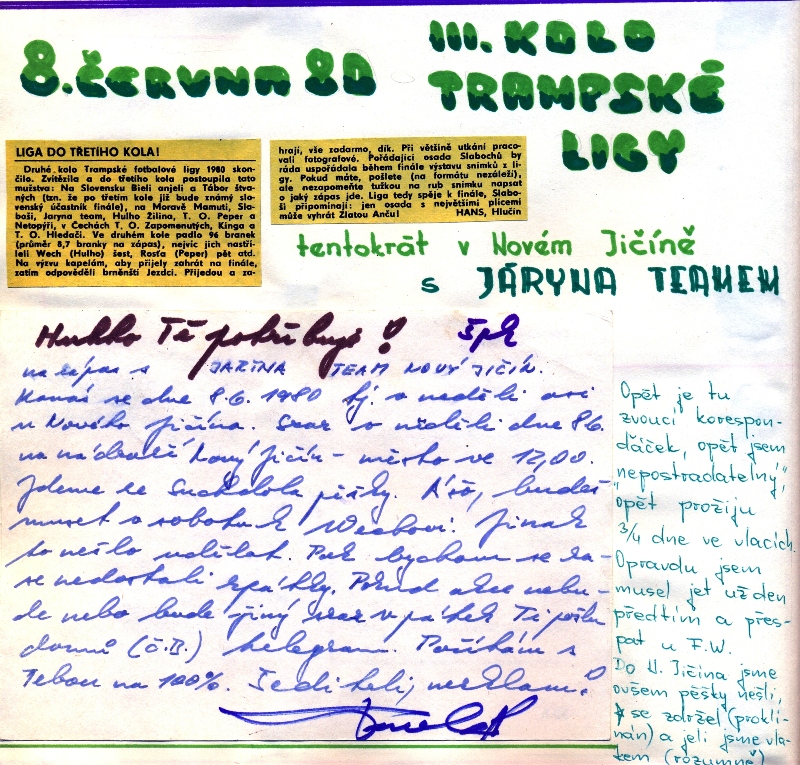 8. ČERVNA 80
III. KOLO
TRAMPSKÉ
LIGY
LIGA DO TŘETÍHO KOLA!
Druhé kolo Trampské fotbalové ligy 1980 skon-
čilo. Zvítězila a do třetího kola postoupila tato
mužstva: Na Slovensku Bieli anjeli a Tábor štva-
ných (tzn. že po třetím kole již bude známý slo-
venský účastník finále), na Moravě Mamuti, Sla-
boši, Jaryna team, Hulho Žilina, T. O. Peper a
Netopýři, v Čechách T. O. Zapomenutých, Kinga a
T. O. Hledači. Ve druhém kole padlo 96 branek
(průměr 8,7 branky na zápas), nejvíc jich nastří-
leli Wech (Hulho) šest, Rosťa (Peper) pět atd.
Na výzvu kapelám, aby přijely zahrát na finále,
zatím odpověděli brněnští Jezdci. Přijedou a za-
hrají, vše zadarmo, dík. Při většině utkání praco-
vali fotografové. Pořádající osada Slabochů by
ráda uspořádala během finále výstavu snímků z li-
gy. Pokud máte, pošlete (na formátu nezáleží),
ale nezapomeňte tužkou na rub snímku napsat
o jaký zápas jde. Liga tedy spěje k finále, Slabo-
ši připomínají: jen osada s největšími plícemi
může vyhrát Zlatou Anču! HANS, Hlučín
tentokrát v Novém Jičíně
s JÁRYNA TEAMEM
Hukko Tě potřebuje!
na zápas s JARINA TEAM NOVÝ JIČÍN.
Konáš se dne 8.6.1980 tj. v neděli asi
u Nového Jičína. Sraz v neděli dne 8.6.
na nádraží Nový Jičín - město ve 12,00.
Jdeme ze Suchdola pěšky. budeš
muset v sobotu k Wechovi. Jinak
to nešlo udělat. Pak bychom se za-
se nedostali zpátky. Pokud akce nebu-
de nebo bude jiný sraz v pátek Ti pošlu
domů (č.B.) telegram. Počítám s
Tebou na 100%.
Opět je tu
zvoucí korespon-
dáček, opět jsem
"nepostradatelný",
opět prožiju
3/4 dne ve vlacích.
Opravdu jsem
musel jet už den
předtím a přes-
pat u F.W.
Do N. Jičína jsme
ovšem pěšky nešli,
se zdržel (prokli-
nán) a jeli jsme vla-
kem (rozumně)